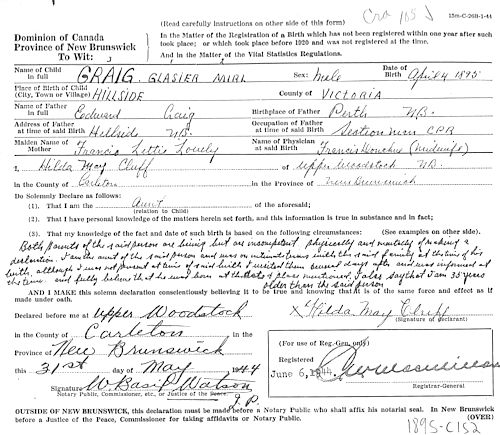 Cra 105 J
15m-C-26B-1-44
(Read carefully Instructions on other side of this form)
Dominion of Canada
Province of New Brunswick
To Wit:
In the Matter of the Registration of a Birth which has not been registered within one year after such
took place; or which took place before 1920 and was not registered at the time.
And in the Matter of the Vital Statistics Regulations.
Name of Child in full CRAIG, GLASIER MIRL Sex: Male Date of Birth April 4 1895
Place of Birth of Child (City, Town or Village) HILLSIDE County of VICTORIA
Name of Father in full Edward Craig Birthplace of Father Perth N.B.
Address of Father at time of said Birth Hillside N.B. Occupation of Father at time of said Birth Sectionman CPR
Maiden Name of Mother Francis Lettie Lovely Name of Physician at said Birth Francis (Midwife)
I, Hilda May Cluff of Upper Woodstock N.B.
in the County of Carleton in the Province of New Brunswick
Do Solemnly Declare as follows:
(1). That I am the aunt of the aforesaid;
(relation to Child)
(2). That I have personal knowledge of the matters herein set forth, and this information is true in substance and in fact;
(3). That my knowledge of the fact and date of such birth is based on the following circumstances: (See examples on other side).
Both parents of the said person are living but are incompetent physically and mentally of making a
declaration. I am the aunt of the said person and was on intimate terms with the said family at the time of his
birth, although I was not present at time of said birth I visited them several days after and was informed at
the time and fully believe that he was born at the date & place mentioned. I also say that I am 35 years
older than the said person
AND I MAKE this solemn declaration conscientiously believing it to be true and knowing that it is of the same force and effect as if
made under oath.
Declared before me at Upper Woodstock
in the County of Carleton
Province of New Brunswick
this 31st day of May 1944
Signature W. Basil Watson
Notary Public, Commissioner, etc., or Justice of the Peace.
J.P.
X Hilda May Cluff
(Signature of declarant)
(For use of Reg.-Gen. only)
Registered
June 6, 1944.
Registrar-General
OUTSIDE OF NEW BRUNSWICK, this declaration must be made before a Notary Public who shall affix his notarial seal. In New Brunswick
before a Justice of the Peace, Commissioner for taking affidavits or Notary Public. (OVER)
1895-C152